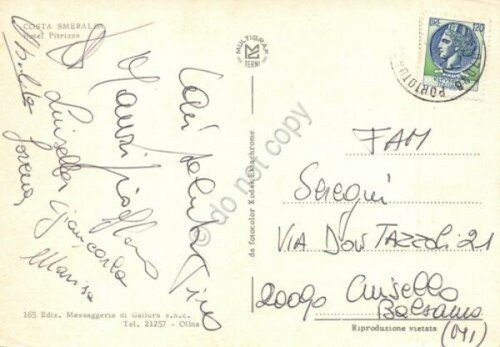 COSTA SMERALDA
Hotel Pitrizza
Cari saluti
Tino
Luisella
Giancarlo
Marisa
Lorena
165 Ediz. Messaggerie di Gallura s.n.c.
Tel. 21257 - Olbia
MULTIGRAF
TERNI
da fotocolor Kodak Ektachrome
do not copy
LIRE 120
FAM
Seregni
VIA DON TAZZOLI 21
20090 Cinisello
Balsamo
(MI)
Riproduzione vietata